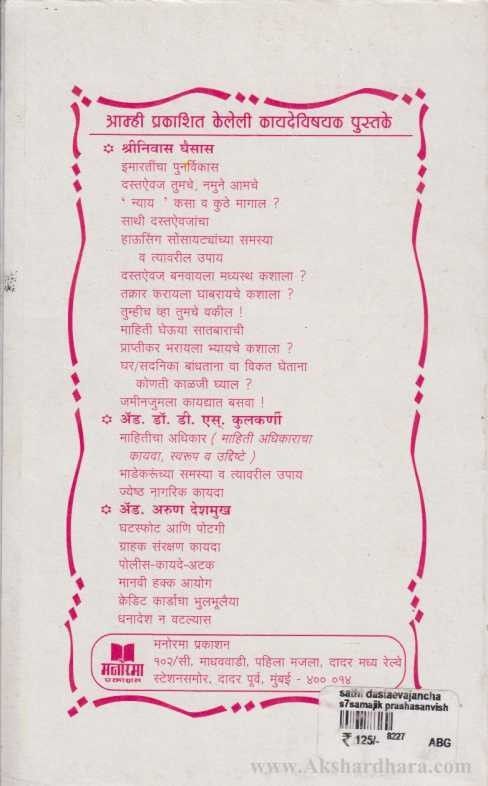 आम्ही प्रकाशित केलेली कायदेविषयक पुस्तके
श्रीनिवास घैसास
इमारतींचा पुनर्विकास
दस्तऐवज तुमचे, नमुने आमचे
' न्याय ' कसा व कुठे मागाल ?
साथी दस्तऐवजांचा
हाऊसिंग सोसायट्यांच्या समस्या
व त्यावरील उपाय
दस्तऐवज बनवायला मध्यस्थ कशाला ?
तक्रार करायला घाबरायचे कशाला ?
तुम्हीच व्हा तुमचे वकील !
माहिती घेऊया सातबाराची
प्राप्तीकर भरायला भ्यायचे कशाला ?
घर/सदनिका बांधताना वा विकत घेताना
कोणती काळजी घ्याल ?
जमीनजुमला कायद्यात बसवा !
ॲड. डॉ. डी. एस्. कुलकर्णी
माहितीचा अधिकार ( माहिती अधिकाराचा
कायदा, स्वरूप व उद्दिष्टे )
भाडेकरूंच्या समस्या व त्यावरील उपाय
ज्येष्ठ नागरिक कायदा
ॲड. अरुण देशमुख
घटस्फोट आणि पोटगी
ग्राहक संरक्षण कायदा
पोलीस-कायदे-अटक
मानवी हक्क आयोग
क्रेडिट कार्डांचा भुलभूलैया
धनादेश न वटल्यास
मनोरमा प्रकाशन
मनोरमा प्रकाशन
१०२/सी, माधववाडी, पहिला मजला, दादर मध्य रेल्वे
स्टेशनसमोर, दादर पूर्व, मुंबई - ४०० ०१४
sathi dastaevajancha
s7samajik prashasanvish
₹ 125/- 8227 ABG
www.Akshardhara.com